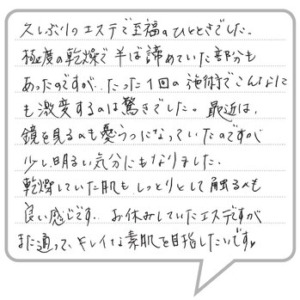 久しぶりのエステで至福のひとときでした。
極度の乾燥で半ば諦めていた部分も
あったのですが、たった1回の施術でこんなに
も激変するのは驚きでした。最近は、
鏡を見るのも憂うつになっていたのですが
少し明るい気分にもなりました。
乾燥していた肌もしっとりとして触るのも
良い感じです。お休みしていたエステですが
また通って、キレイな素肌を目指したいです♥